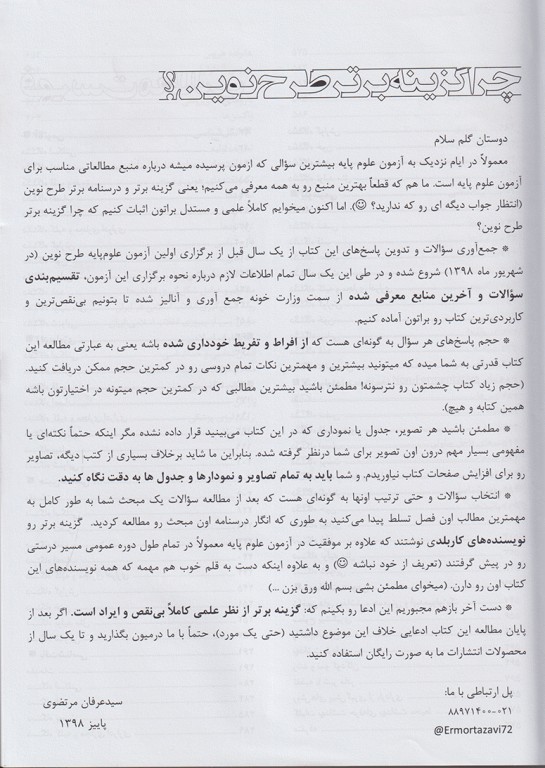 چرا گزینه برتر طرح نوین؟
دوستان گلم سلام
معمولاً در ایام نزدیک به آزمون علوم پایه بیشترین سؤالی که ازمون پرسیده میشه درباره منبع مطالعاتی مناسب برای
آزمون علوم پایه است. ما هم که قطعاً بهترین منبع رو به همه معرفی می‌کنیم؛ یعنی گزینه برتر و درسنامه برتر طرح نوین
(انتظار جواب دیگه ای رو که ندارید؟ ☺). اما اکنون میخوایم کاملاً علمی و مستدل براتون اثبات کنیم که چرا گزینه برتر
طرح نوین؟
* جمع‌آوری سؤالات و تدوین پاسخ‌های این کتاب از یک سال قبل از برگزاری اولین آزمون علوم‌پایه طرح نوین (در
شهریور ماه ۱۳۹۸) شروع شده و در طی این یک سال تمام اطلاعات لازم درباره نحوه برگزاری این آزمون، تقسیم‌بندی
سؤالات و آخرین منابع معرفی شده از سمت وزارت خونه جمع آوری و آنالیز شده تا بتونیم بی‌نقص‌ترین و
کاربردی‌ترین کتاب رو براتون آماده کنیم.
* حجم پاسخ‌های هر سؤال به گونه‌ای هست که از افراط و تفریط خودداری شده باشه یعنی به عبارتی مطالعه این
کتاب قدرتی به شما میده که میتونید بیشترین و مهمترین نکات تمام دروسی رو در کمترین حجم ممکن دریافت کنید.
(حجم زیاد کتاب چشمتون رو نترسونه! مطمئن باشید بیشترین مطالبی که در کمترین حجم میتونه در اختیارتون باشه
همین کتابه و هیچ).
* مطمئن باشید هر تصویر، جدول یا نموداری که در این کتاب می‌بینید قرار داده نشده مگر اینکه حتماً نکته‌ای یا
مفهومی بسیار مهم درون اون تصویر برای شما درنظر گرفته شده. بنابراین ما شاید برخلاف بسیاری از کتب دیگه، تصاویر
رو برای افزایش صفحات کتاب نیاوردیم. و شما باید به تمام تصاویر و نمودارها و جدول ها به دقت نگاه کنید.
* انتخاب سؤالات و حتی ترتیب اونها به گونه‌ای هست که بعد از مطالعه سؤالات یک مبحث شما به طور کامل به
مهمترین مطالب اون فصل تسلط پیدا می‌کنید به طوری که انگار درسنامه اون مبحث رو مطالعه کردید. گزینه برتر رو
نویسنده‌های کاربلدی نوشتند که علاوه بر موفقیت در آزمون علوم پایه معمولاً در تمام طول دوره عمومی مسیر درستی
رو در پیش گرفتند (تعریف از خود نباشه ☺) و به علاوه اینکه دست به قلم خوب هم مهمه که همه نویسنده‌های این
کتاب اون رو دارن. (میخوای مطمئن بشی بسم الله ورق بزن ...)
* دست آخر بازهم مجبوریم این ادعا رو بکنیم که: گزینه برتر از نظر علمی کاملاً بی‌نقص و ایراد است. اگر بعد از
پایان مطالعه این کتاب ادعایی خلاف این موضوع داشتید (حتی یک مورد)، حتماً با ما درمیون بگذارید و تا یک سال از
محصولات انتشارات ما به صورت رایگان استفاده کنید.
پل ارتباطی با ما:
۸۸۹۷۱۴۰۰-۰۲۱
@Ermortazavi72
سیدعرفان مرتضوی
پاییز ۱۳۹۸